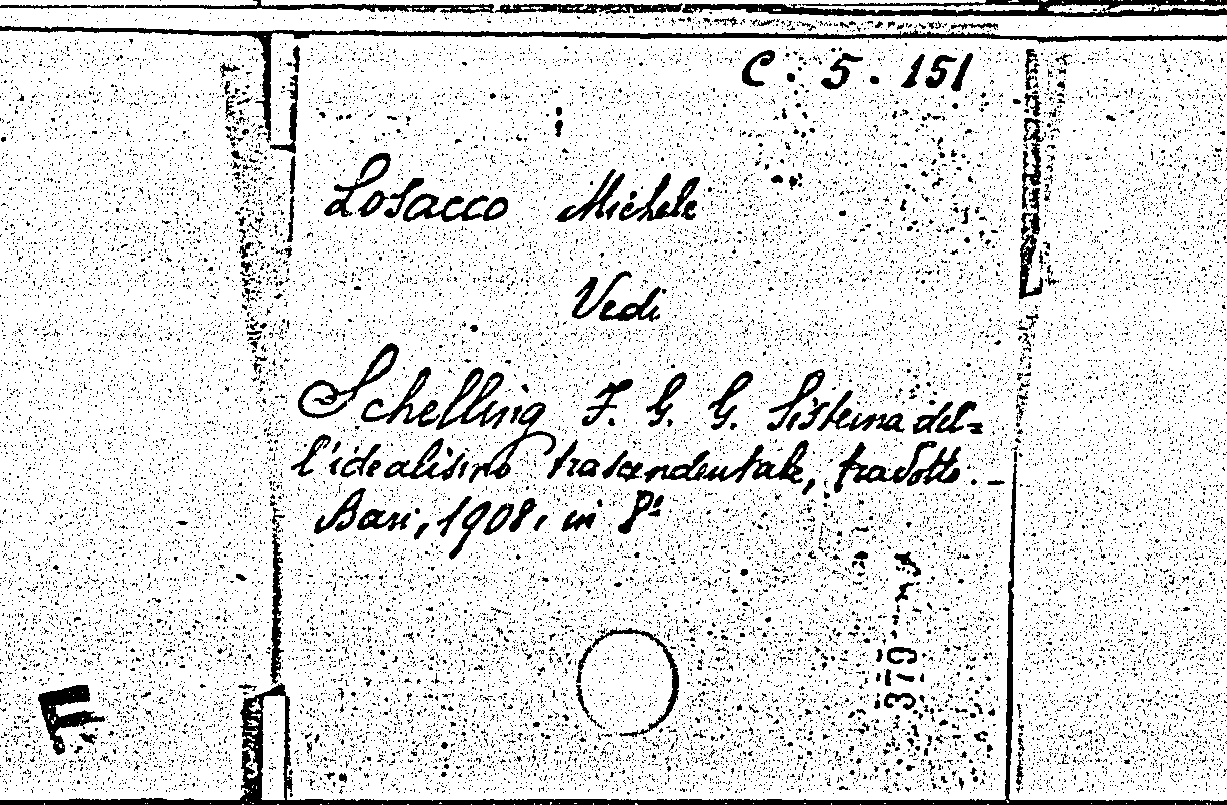 C. 5. 151
Losacco Michele
Vedi
Schelling F. G. G. Sistema del=
l'idealismo trascendentale, tradotto. -
Bari, 1908, in 8º
379